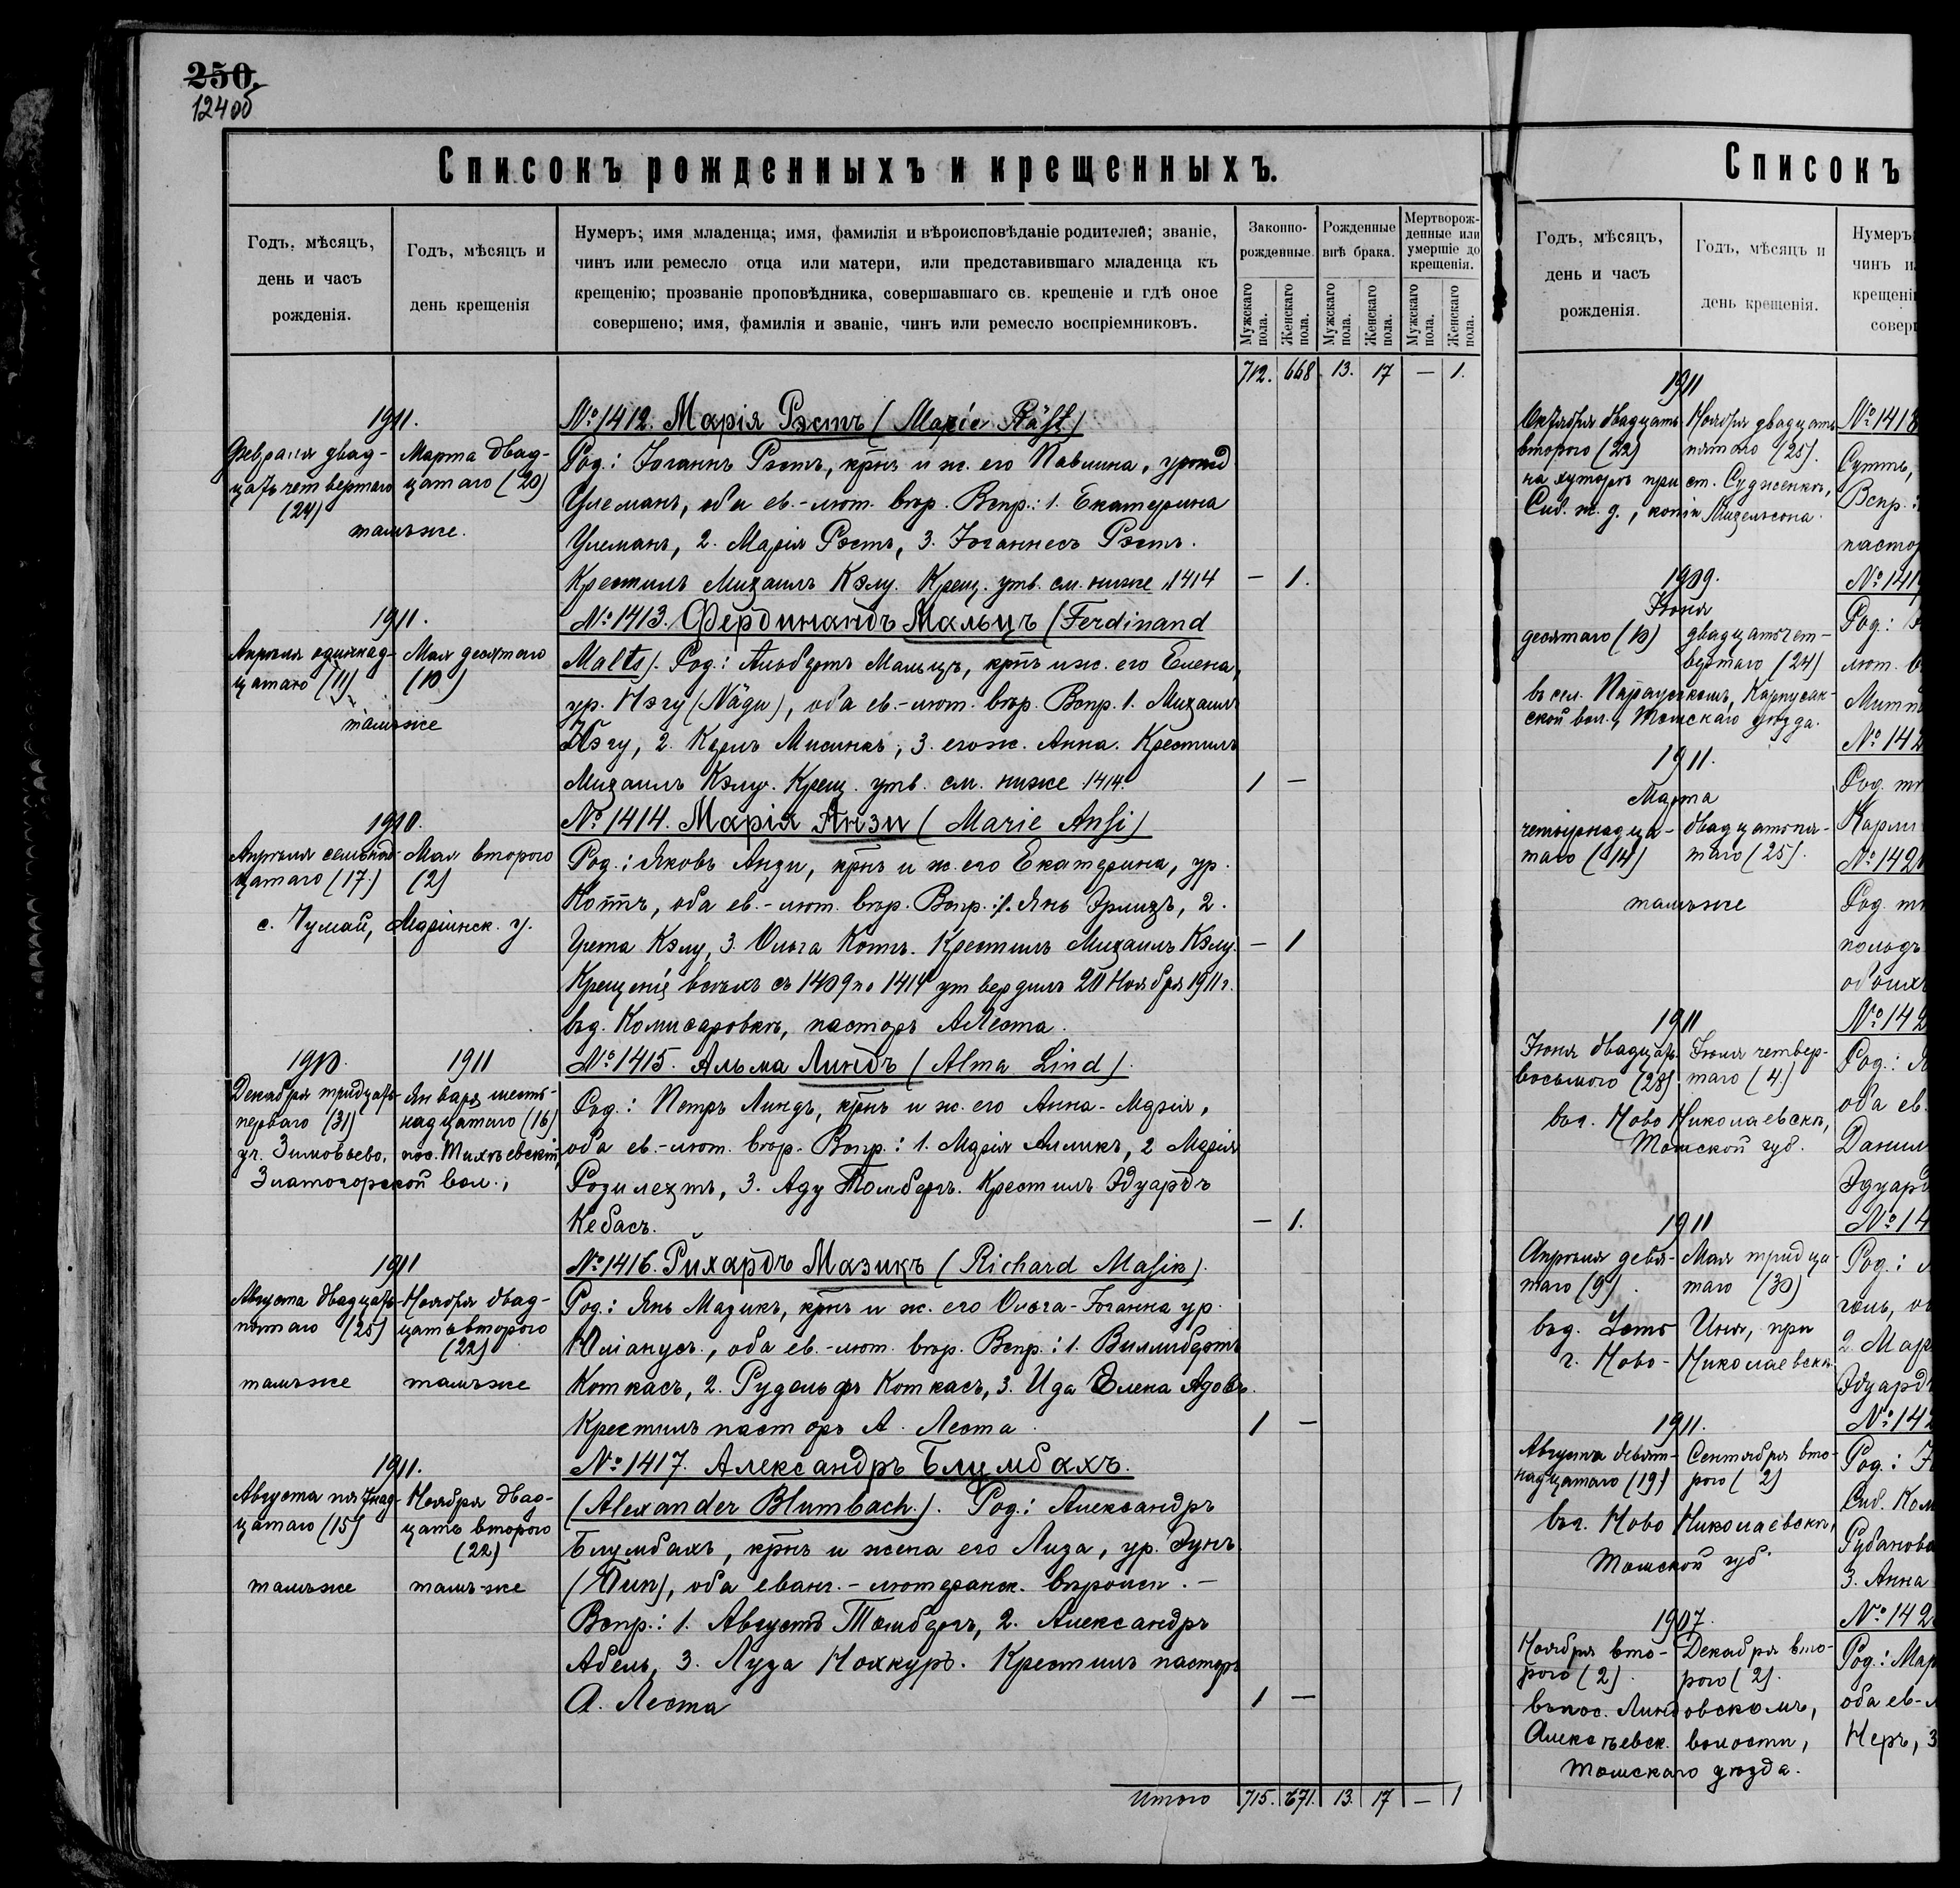 250.
124 об
Списокъ рожденныхъ и крещенныхъ.
Годъ, мѣсяцъ,
день и часъ
рожденія.
Годъ, мѣсяцъ и
день крещенія
Нумеръ; имя младенца; имя, фамилія и вѣроисповѣданіе родителей; званіе,
чинъ или ремесло отца или матери, или представившаго младенца къ
крещенію; прозваніе проповѣдника, совершавшаго св. крещеніе и гдѣ оное
совершено; имя, фамилія и званіе, чинъ или ремесло воспріемниковъ.
Законно-
рожденные.
Рожденные
внѣ брака.
Мертворож-
денные или
умершіе до
крещенія.
Мужскаго пола.
Женскаго пола.
Мужскаго пола.
Женскаго пола.
Мужскаго пола.
Женскаго пола.
712. 668 13. 17 — 1.
1911.
Февраля двад-
цать четвертаго
(24)
Марта двад-
цатаго (20)
тамъже.
№ 1412. Марія Рэстъ (Marie Räst)
Род.: Іоганнъ Рэстъ, крнъ и ж. его Павлина, урожд
Улеманъ, оба ев.-лют. вѣр. Вспр.: 1. Екатерина
Улеманъ, 2. Марія Рэстъ, 3. Іоганнесъ Рэстъ.
Крестилъ Михаилъ Кэлу. Крещ. утв. см. ниже 1414 — 1.
1911.
Апрѣля одиннад-
цатаго (11)
Мая десятаго
(10)
тамъже
№ 1413. Фердинандъ Мальцъ (Ferdinand
Malts). Род.: Альбертъ Мальцъ, крнъ и ж. его Елена,
ур. Нэгу (Nägu), оба ев.-лют. вѣр. Вспр. 1. Михаилъ
Нэгу, 2. Карлъ Мисикъ, 3. его ж. Анна. Крестилъ
Михаилъ Кэлу. Крещ. утв. см. ниже 1414. 1 —
1910.
Апрѣля семьнад-
цатаго (17.)
Мая второго
(2)
с. Чумай, Маріинск. у.
№ 1414. Марія Анзи (Marie Ansi)
Род.: Яковъ Анзи, крнъ и ж. его Екатерина, ур.
Коттъ, оба ев.-лют. вѣр. Вспр.: 1. Янъ Эрлихъ, 2.
Грета Кэлу, 3. Ольга Котъ. Крестилъ Михаилъ Кэлу. — 1
Крещенія всѣхъ съ 1409 по 1414 утвердилъ 20 Ноября 1911 г.
въ д. Комисаровкѣ, пасторъ А Леста.
1910.
1911
Декабря тридцать
перваго (31)
уч. Зимовьево,
Января шесть-
надцатаго (16)
пос. Михѣевскій,
Златогорской вол.,
№ 1415. Альма Линдъ (Alma Lind).
Род.: Петръ Линдъ, крнъ и ж. его Анна-Марія,
оба ев.-лют. вѣр. Вспр.: 1. Марія Алликъ, 2 Марія
3. Аду Томбергъ. Крестилъ Эдуардъ
Кебасъ. — 1.
1911
Августа двадцать
пятаго (25)
Ноября двад-
цать второго
(22)
тамъже
тамъже
№ 1416. Рихардъ Мазикъ (Richard Masik).
Род.: Янъ Мазикъ, крнъ и ж. его Ольга-Іоганна ур.
Юліанусъ, оба ев.-лют. вѣр. Вспр.: 1. Виллибертъ
Коткасъ, 2. Рудольфъ Коткасъ, 3. Ида Елена Адовъ.
Крестилъ пасторъ А. Леста. 1 —
1911.
Августа пятнад-
цатаго (15)
Ноября двад-
цать второго
(22)
тамъже
тамъ-же
№ 1417. Александръ Блумбахъ.
(Alexander Blumbach.). Род.: Александръ
Блумбахъ, крнъ и жена его Лиза, ур.
оба еванг.-лютеранск. вѣроисп. —
Вспр.: 1. Августъ Томбергъ, 2. Александръ
Абель, 3. Луза Ноккуръ. Крестилъ пасторъ
А. Леста 1 —
Итого 715. 671. 13. 17 — 1
Списокъ
Годъ, мѣсяцъ,
день и часъ
рожденія.
Годъ, мѣсяцъ и
день крещенія.
Нумеръ
чинъ и
крещені
совер
1911
Октября двадцать
второго (22)
Ноября двадцать
пятаго (25).
на хуторѣ при ст. Судженкѣ,
Сиб. ж. д., копи Михельсона.
№ 1418
Сутть,
Вспр.:
пастор
1909.
Іюня
десятаго (10)
двадцатьчет-
вертаго (24)
въ сел. Карпусак-
ской вол., Томскаго уѣзда.
№ 141
Род.:
лют. в
1911.
Марта
четырнадца-
таго (14)
двадцатопя-
таго (25).
тамъже
№ 142
Род.
Карли
№ 142
Род.
польдъ
обоихъ
1911
Іюня двадцать
восьмого (28)
Іюля четвер-
таго (4.)
въ г. Ново Николаевскѣ,
Томской губ.
№ 142
Род.: Я
оба ев.
Данил
Эдуард
1911
Апрѣля девя-
таго (9)
Мая тридца
таго (30)
въ д. Усть Иня, при
г. Ново-Николаевскѣ
№ 14
Род.:
2. Мар
Эдуард
1911.
Августа девят-
надцатаго (19)
Сентября вто-
рого (2)
въ г. Ново Николаевскѣ,
Томской губ.
№ 142
Род.:
Сиб. Кол
Рубанова
3. Анна
1907.
Ноября вто-
рого (2).
Декабря вто-
рого (2).
въ пос. Линдовскомъ,
Алексѣевск. волости,
Томскаго уѣзда.
№ 142
Род.: Мар
оба ев-л
Неръ, 3